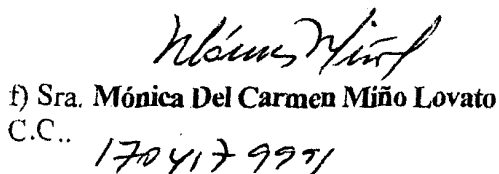 Mónica Miño
f) Sra. Mónica Del Carmen Miño Lovato
C.C..